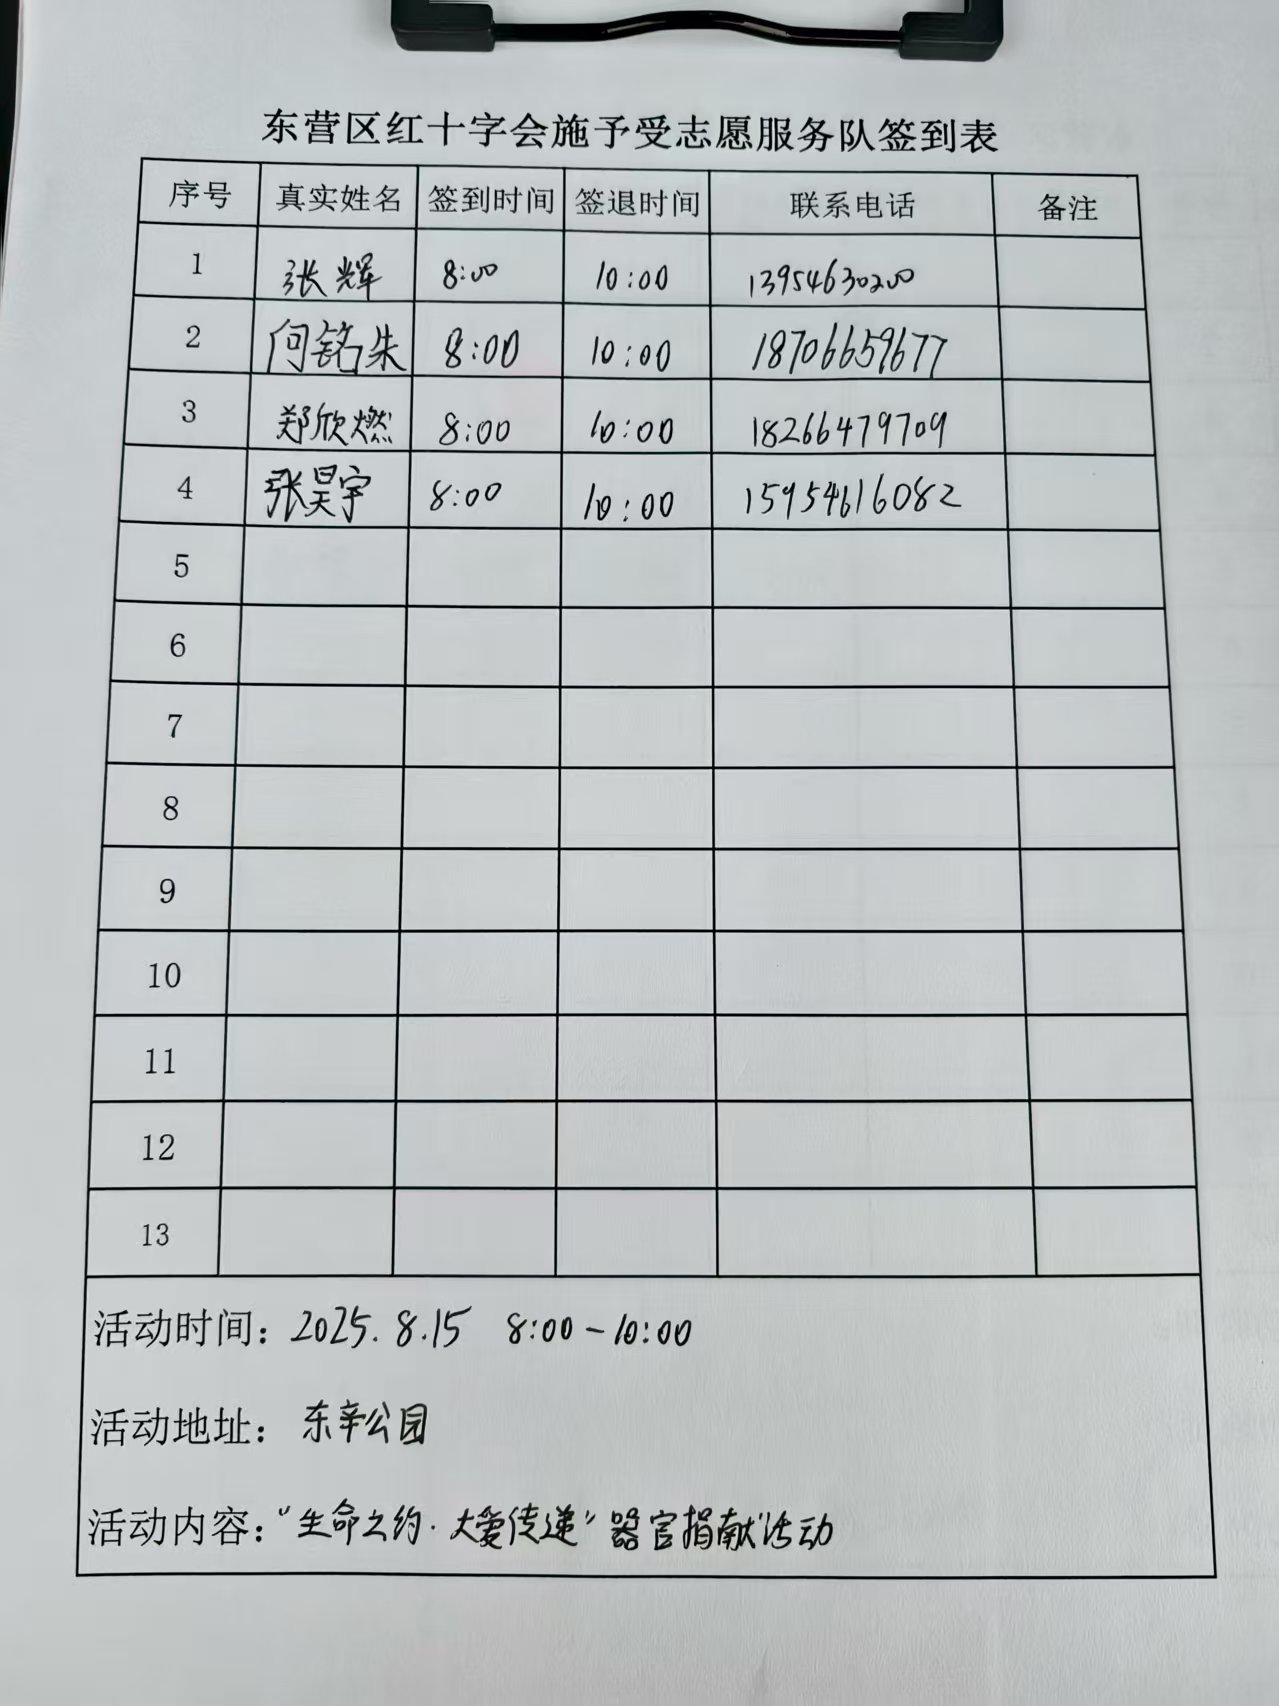 东营区红十字会施予受志愿服务队签到表
序号 真实姓名 签到时间 签退时间 联系电话 备注
1 张辉 8:00 10:00 13954630200
2 何铭朱 8:00 10:00 18706659677
3 郑欣燃 8:00 10:00 18266479709
4 张昊宇 8:00 10:00 15954616082
5
6
7
8
9
10
11
12
13
活动时间: 2025.8.15 8:00-10:00
活动地址: 东辛公园
活动内容: "生命之约·大爱传递"器官捐献活动